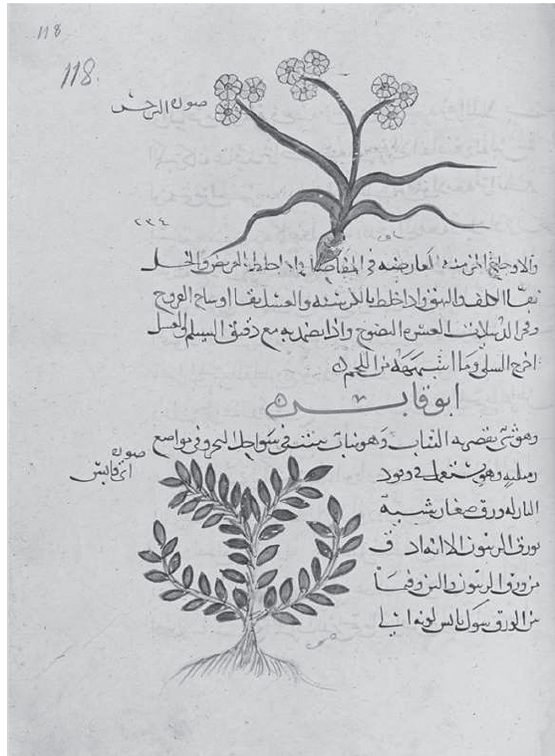 118
118.
صورة النرجس
٢٣٤
والاوجاع المزمنه العارضه في المفاصل واذا خلط والخل
نقا الكلف والبهق واذا خلط بالكرسنه والعسل نقا اوساخ القروح
وفجر الدبيلات العسره النضوج واذا تضمد به مع دقيق الشيلم والعسل
اخرج السلى وما اشبهه من اللحم
ابوقابس
وهو شي يقصر به الثياب وهو نبات ينبت في سواحل البحر وفي مواضع
صورة ابوقابس
رمليه وهو يستعمل في وقود
النار له ورق صغار شبيه
بورق الزيتون الا انه ادق
من ورق الزيتون والين وفيما
بين الورق شوك يابس لونه الى